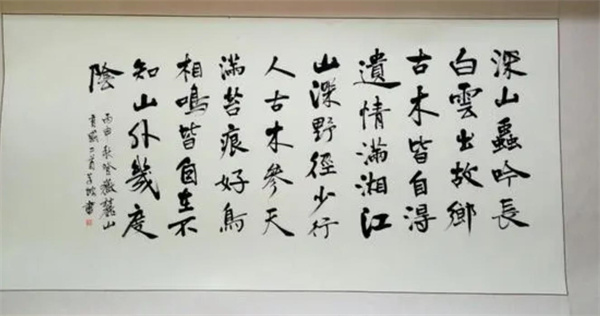 深山蟲吟長
白雲出故鄉
古木皆自得
遺情滿湘江
山深野徑少行
人古木參天
滿苔痕好鳥
相鳴皆自在不
知山外幾度
陰
丙申秋登嶽麓山
有感二首
書